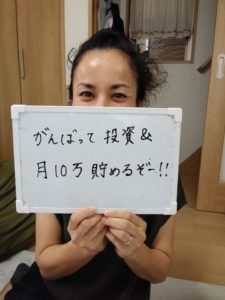 がんばって投資&
月10万貯めるぞー!!